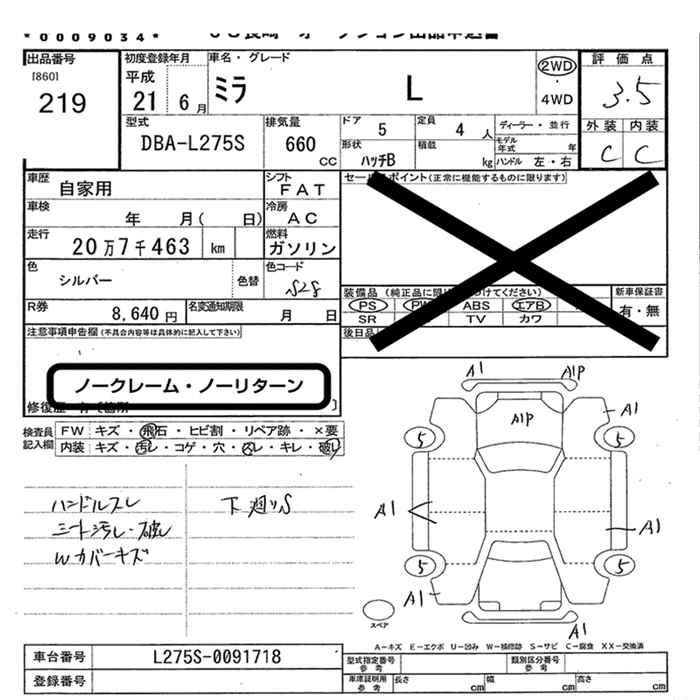 *0009034*
出品番号
[860]
219
初度登録年月
平成
21年 6月
車名・グレード
ミラ L
2WD
・
4WD
評価点
3.5
外装 内装
C C
型式
DBA-L275S
排気量
660
cc
ドア 5
定員 4人
ディーラー・並行
形状 ハッチB
積載 kg
モデル年式 年
ハンドル 左・右
車歴
自家用
シフト
FAT
車検
年 月( 日)
冷房
AC
走行
20万7千463 km
燃料
ガソリン
色
シルバー
色替
色コード
S28
R券
8,640円
名変通知期限
月 日
セールスポイント(正常に機能するものに限ります)
装備品(純正品に限り
つけてください)
PS PW ABS エアB
SR TV カワ
新車保証書
有・無
後日品
注意事項申告欄(不具合内容等は具体的に記入して下さい)
ノークレーム・ノーリターン
修復歴
検査員
記入欄
FW キズ・飛石・ヒビ割・リペア跡・×要
内装 キズ・汚レ・コゲ・穴・スレ・キレ・破レ
ハンドルスレ
シート汚レ・破レ
Wカバーキズ
下廻りS
A1 A1P
A1P
A1
5 5
A1
A1
5 5
A1
A1
スペア
A-キズ E-エクボ U-凹み W-補修跡 S-サビ C-腐食 XX-交換済
車台番号
L275S-0091718
登録番号
型式指定番号
参考
類別区分番号
参考
車庫証明用
参考
長さ cm
幅 cm
高さ cm